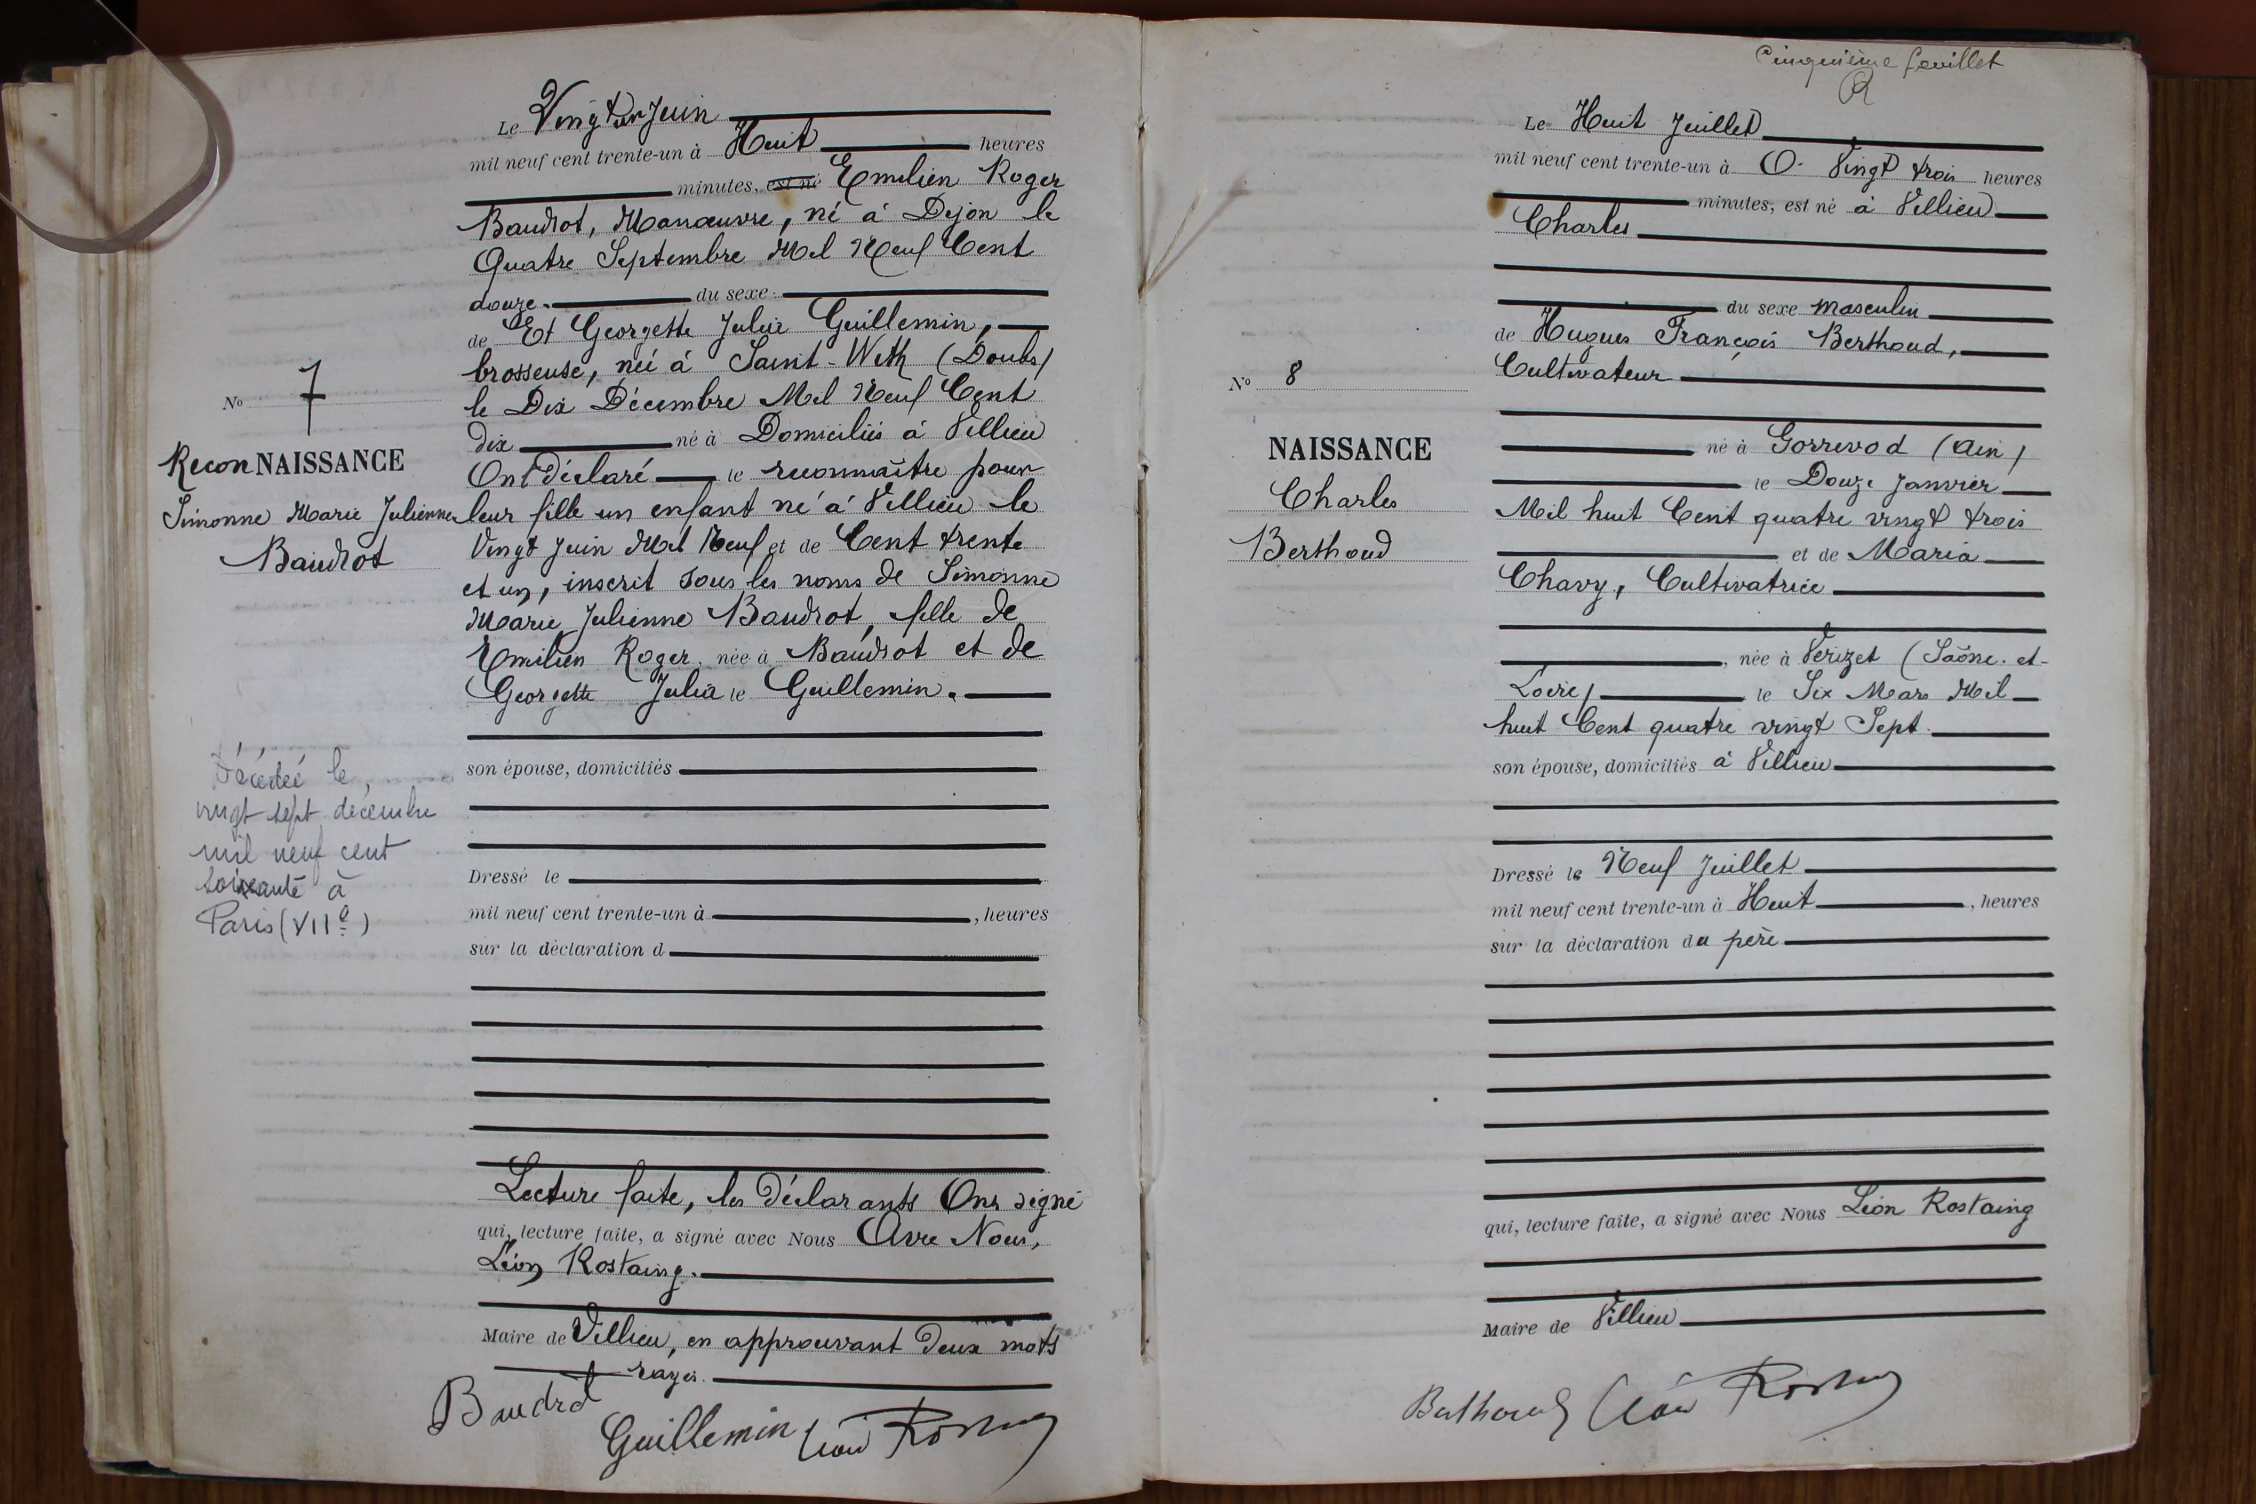 Le Vingt un Juin
mil neuf cent trente-un à Huit heures
minutes, est né Emilien Roger
Baudrot, Manœuvre, né à Dijon le
Quatre Septembre Mil Neuf Cent
douze. du sexe
de Et Georgette Julia Guillemin,
brosseuse, née à Saint-With (Doubs)
le Dix Décembre Mil Neuf Cent
dix né à Domiciliés à Villieu
Ont Déclaré le reconnaître pour
leur fille un enfant né à Villieu le
Vingt Juin Mil Neuf et de Cent trente
et un, inscrit sous les noms de Simonne
Marie Julienne Baudrot, fille de
Emilien Roger, née à Baudrot et de
Georgette Julia le Guillemin.
son épouse, domiciliés
Dressé le
mil neuf cent trente-un à , heures
sur la déclaration d
Lecture faite, les Déclarants Ont signé
qui, lecture faite, a signé avec Nous Avec Nous,
Léon Rostaing.
Maire de Villieu, en approuvant Deux mots
rayés.
Baudrot
Guillemin Léon Rostaing
No 7
ReconNAISSANCE
Simonne Marie Julienne
Baudrot
Décédée le
vingt sept décembre
mil neuf cent
soixante à
Paris (VIIe)
Cinquième feuillet
R
Le Huit Juillet
mil neuf cent trente-un à O. Vingt trois heures
minutes, est né à Villieu
Charles
du sexe masculin
de Hugues François Berthoud,
Cultivateur
né à Gorrevod (Ain)
le Douze Janvier
Mil huit Cent quatre vingt trois
et de Maria
Chavy, Cultivatrice
, née à Verizet (Saône-et-
Loire) le Six Mars Mil
huit Cent quatre vingt Sept
son épouse, domiciliés à Villieu
Dressé le Neuf Juillet
mil neuf cent trente-un à Huit , heures
sur la déclaration du père
qui, lecture faite, a signé avec Nous Léon Rostaing
Maire de Villieu
Berthoud Léon Rostaing
No 8
NAISSANCE
Charles
Berthoud